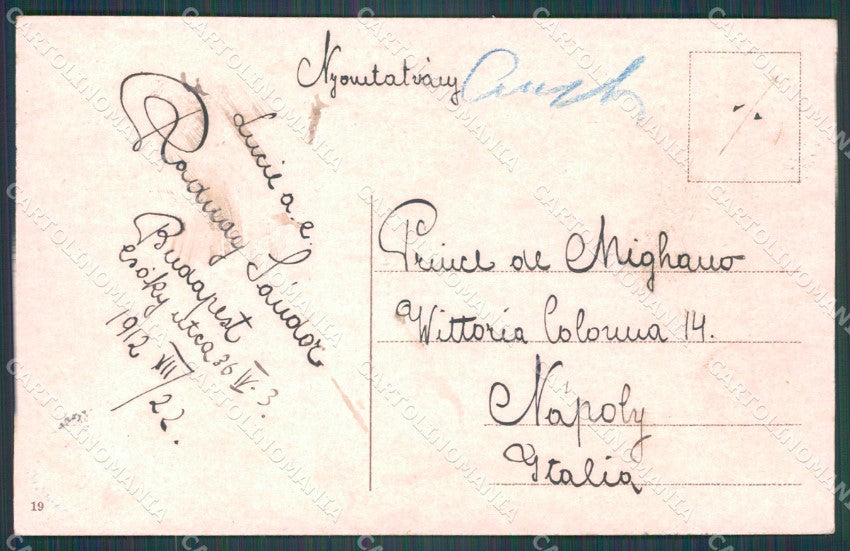 Nyomtatvány
Lucie a. c.
Radway Sándor
Budapest
Csáky utca 36 IV. 3.
1912 VIII/22.
Prince de Mighano
Wittoria Colonna 14.
Nápoly
Italia
19
CARTOLINOMANIA